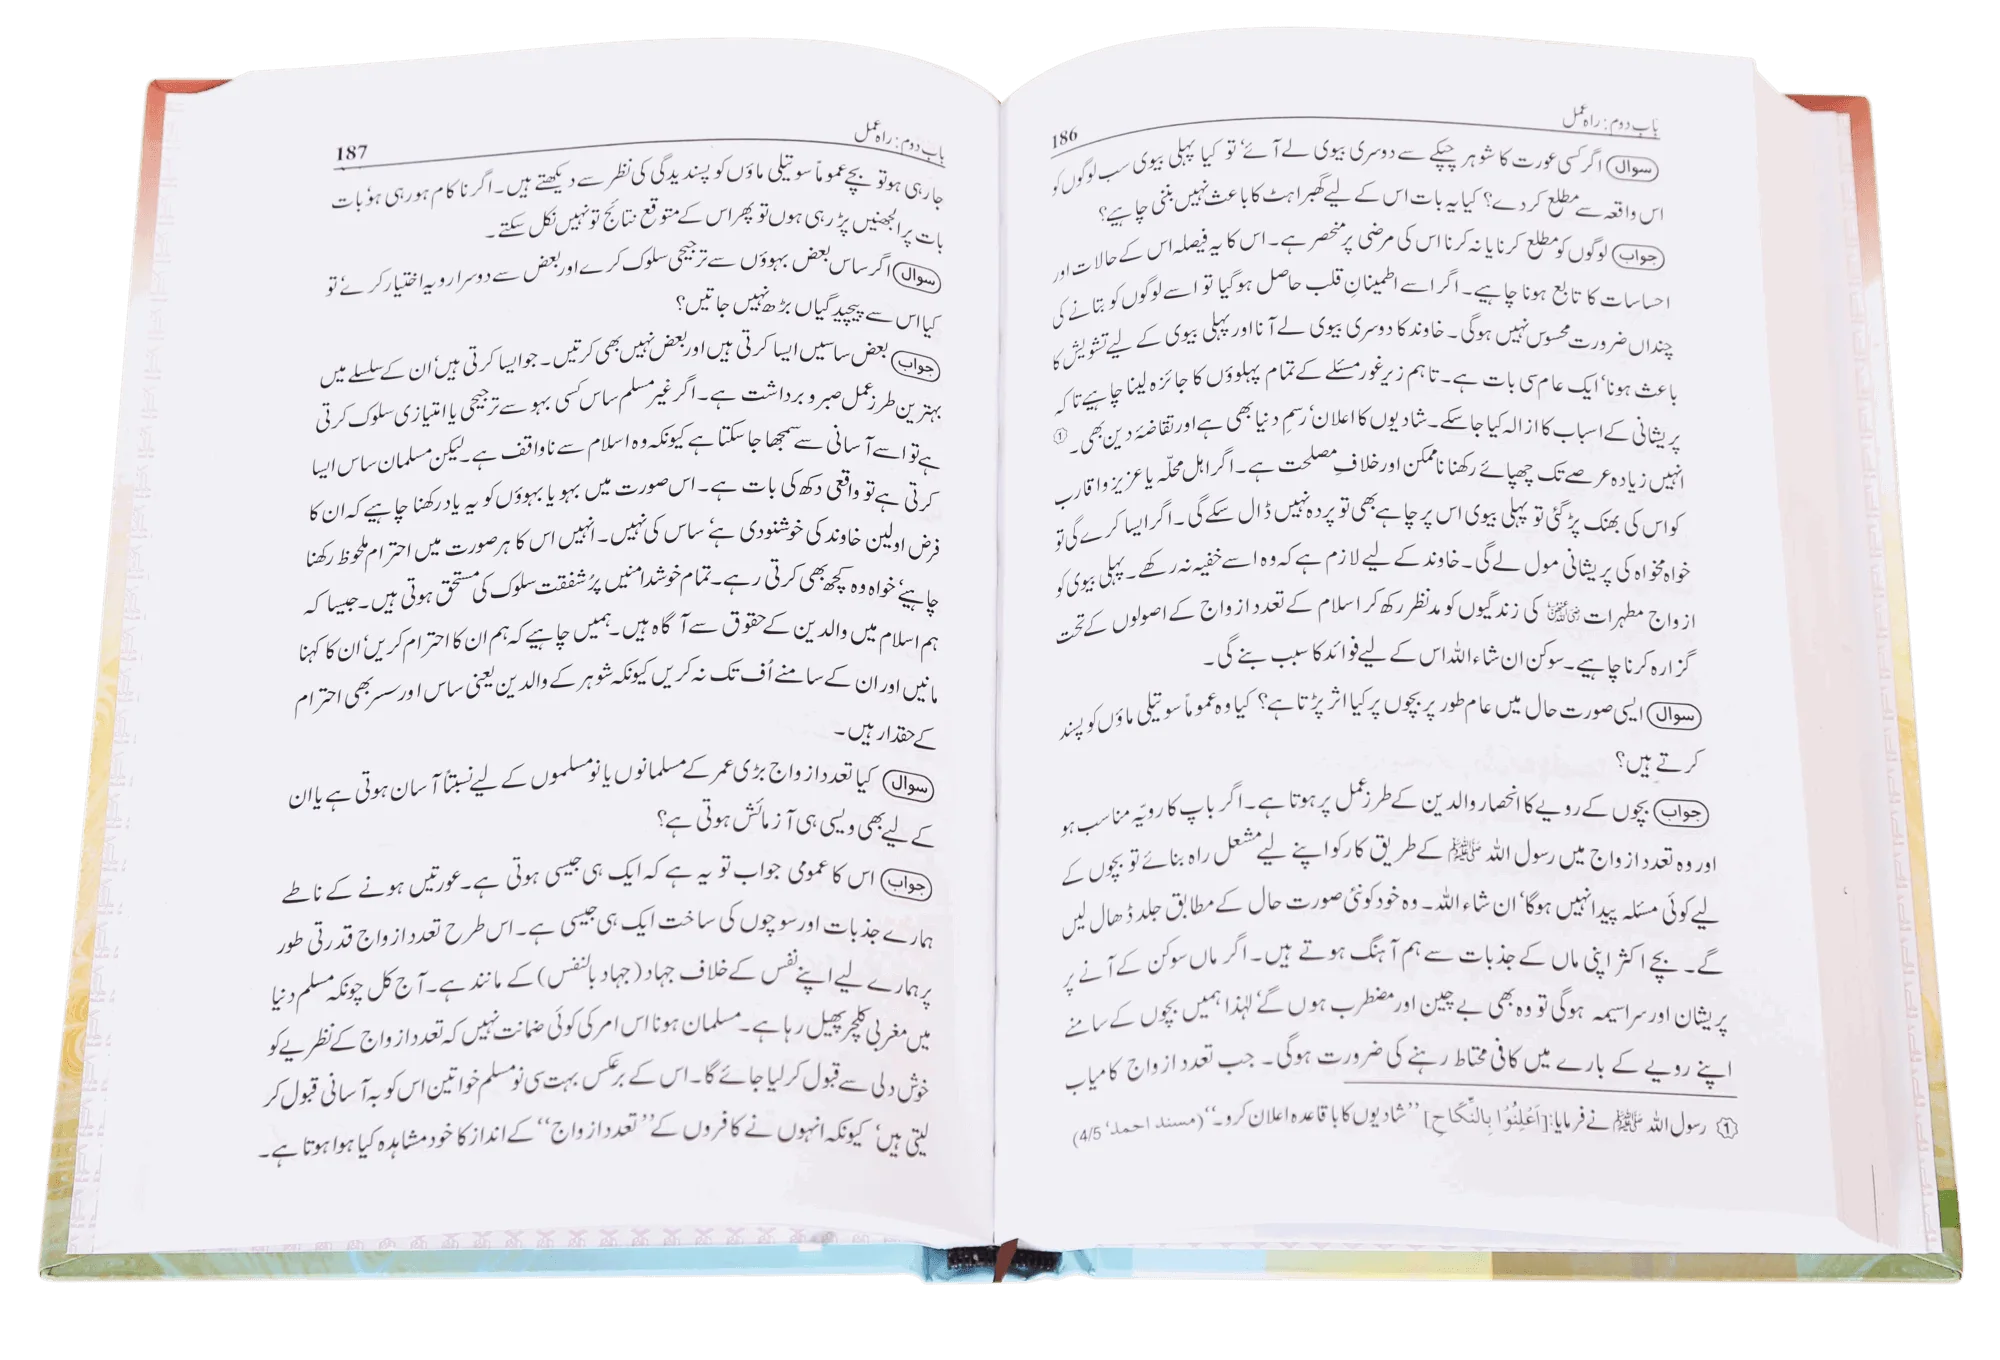 باب دوم: راہ عمل
186
سوال اگر کسی عورت کا شوہر چپکے سے دوسری بیوی لے آئے‘ تو کیا پہلی بیوی سب لوگوں کو
اس واقعہ سے مطلع کردے؟ کیا یہ بات اس کے لیے گھبراہٹ کا باعث نہیں بننی چاہیے؟
جواب لوگوں کو مطلع کرنا یا نہ کرنا اس کی مرضی پر منحصر ہے۔ اس کا یہ فیصلہ اس کے حالات اور
احساسات کا تابع ہونا چاہیے۔ اگر اسے اطمینانِ قلب حاصل ہوگیا تو اسے لوگوں کو بتانے کی
چنداں ضرورت محسوس نہیں ہوگی۔ خاوند کا دوسری بیوی لے آنا اور پہلی بیوی کے لیے تشویش کا
باعث ہونا‘ ایک عام سی بات ہے۔ تاہم زیرِ غور مسئلے کے تمام پہلوؤں کا جائزہ لینا چاہیے تاکہ
پریشانی کے اسباب کا ازالہ کیا جاسکے۔ شادیوں کا اعلان‘ رسمِ دنیا بھی ہے اور تقاضۂ دین بھی۔ ①
انہیں زیادہ عرصے تک چھپائے رکھنا ناممکن اور خلافِ مصلحت ہے۔ اگر اہل محلّہ یا عزیز واقارب
کو اس کی بھنک پڑ گئی تو پہلی بیوی اس پر چاہے بھی تو پردہ نہیں ڈال سکے گی۔ اگر ایسا کرے گی تو
خواہ مخواہ کی پریشانی مول لے گی۔ خاوند کے لیے لازم ہے کہ وہ اسے خفیہ نہ رکھے۔ پہلی بیوی کو
ازواج مطہرات رضی اللہ عنہن کی زندگیوں کو مدنظر رکھ کر اسلام کے تعدد ازواج کے اصولوں کے تحت
گزارہ کرنا چاہیے۔ سوکن ان شاء اللہ اس کے لیے فوائد کا سبب بنے گی۔
سوال ایسی صورت حال میں عام طور پر بچوں پر کیا اثر پڑتا ہے؟ کیا وہ عموماً سوتیلی ماؤں کو پسند
کرتے ہیں؟
جواب بچوں کے رویے کا انحصار والدین کے طرز عمل پر ہوتا ہے۔ اگر باپ کا رویّہ مناسب ہو
اور وہ تعدد ازواج میں رسول اللہ ﷺ کے طریق کار کو اپنے لیے مشعل راہ بنائے تو بچوں کے
لیے کوئی مسئلہ پیدا نہیں ہوگا‘ ان شاء اللہ۔ وہ خود کو نئی صورت حال کے مطابق جلد ڈھال لیں
گے۔ بچے اکثر اپنی ماں کے جذبات سے ہم آہنگ ہوتے ہیں۔ اگر ماں سوکن کے آنے پر
پریشان اور سراسیمہ ہوگی تو وہ بھی بے چین اور مضطرب ہوں گے‘ لہٰذا ہمیں بچوں کے سامنے
اپنے رویے کے بارے میں کافی محتاط رہنے کی ضرورت ہوگی۔ جب تعدد ازواج کامیاب
① رسول اللہ ﷺ نے فرمایا: [اَعْلِنُوْا بِالنِّكَاحِ] ’’شادیوں کا باقاعدہ اعلان کرو۔‘‘ (مسند احمد‘ 4/5)
باب دوم: راہ عمل
187
جارہی ہو تو بچے عموماً سوتیلی ماؤں کو پسندیدگی کی نظر سے دیکھتے ہیں۔ اگر ناکام ہورہی ہو‘ بات
بات پر الجھنیں پڑ رہی ہوں تو پھر اس کے متوقع نتائج تو نہیں نکل سکتے۔
سوال اگر ساس بعض بہوؤں سے ترجیحی سلوک کرے اور بعض سے دوسرا رویہ اختیار کرے‘ تو
کیا اس سے پیچیدگیاں بڑھ نہیں جاتیں؟
جواب بعض ساسیں ایسا کرتی ہیں اور بعض نہیں بھی کرتیں۔ جو ایسا کرتی ہیں‘ ان کے سلسلے میں
بہترین طرز عمل صبر و برداشت ہے۔ اگر غیر مسلم ساس کسی بہو سے ترجیحی یا امتیازی سلوک کرتی
ہے تو اسے آسانی سے سمجھا جاسکتا ہے کیونکہ وہ اسلام سے ناواقف ہے۔ لیکن مسلمان ساس ایسا
کرتی ہے تو واقعی دکھ کی بات ہے۔ اس صورت میں بہو یا بہوؤں کو یہ یاد رکھنا چاہیے کہ ان کا
فرض اولین خاوند کی خوشنودی ہے‘ ساس کی نہیں۔ انہیں اس کا ہر صورت میں احترام ملحوظ رکھنا
چاہیے‘ خواہ وہ کچھ بھی کرتی رہے۔ تمام خوشدامنیں پرُ شفقت سلوک کی مستحق ہوتی ہیں۔ جیسا کہ
ہم اسلام میں والدین کے حقوق سے آگاہ ہیں۔ ہمیں چاہیے کہ ہم ان کا احترام کریں‘ ان کا کہنا
مانیں اور ان کے سامنے اُف تک نہ کریں کیونکہ شوہر کے والدین یعنی ساس اور سسر بھی احترام
کے حقدار ہیں۔
سوال کیا تعدد ازواج بڑی عمر کے مسلمانوں یا نو مسلموں کے لیے نسبتاً آسان ہوتی ہے یا ان
کے لیے بھی ویسی ہی آزمائش ہوتی ہے؟
جواب اس کا عمومی جواب تو یہ ہے کہ ایک ہی جیسی ہوتی ہے۔ عورتیں ہونے کے ناطے
ہمارے جذبات اور سوچوں کی ساخت ایک ہی جیسی ہے۔ اس طرح تعدد ازواج قدرتی طور
پر ہمارے لیے اپنے نفس کے خلاف جہاد (جہاد بالنفس) کے مانند ہے۔ آج کل چونکہ مسلم دنیا
میں مغربی کلچر پھیل رہا ہے۔ مسلمان ہونا اس امر کی کوئی ضمانت نہیں کہ تعدد ازواج کے نظریے کو
خوش دلی سے قبول کرلیا جائے گا۔ اس کے برعکس بہت سی نو مسلم خواتین اس کو بہ آسانی قبول کر
لیتی ہیں‘ کیونکہ انہوں نے کافروں کے ’’تعدد ازواج‘‘ کے انداز کا خود مشاہدہ کیا ہوا ہوتا ہے۔